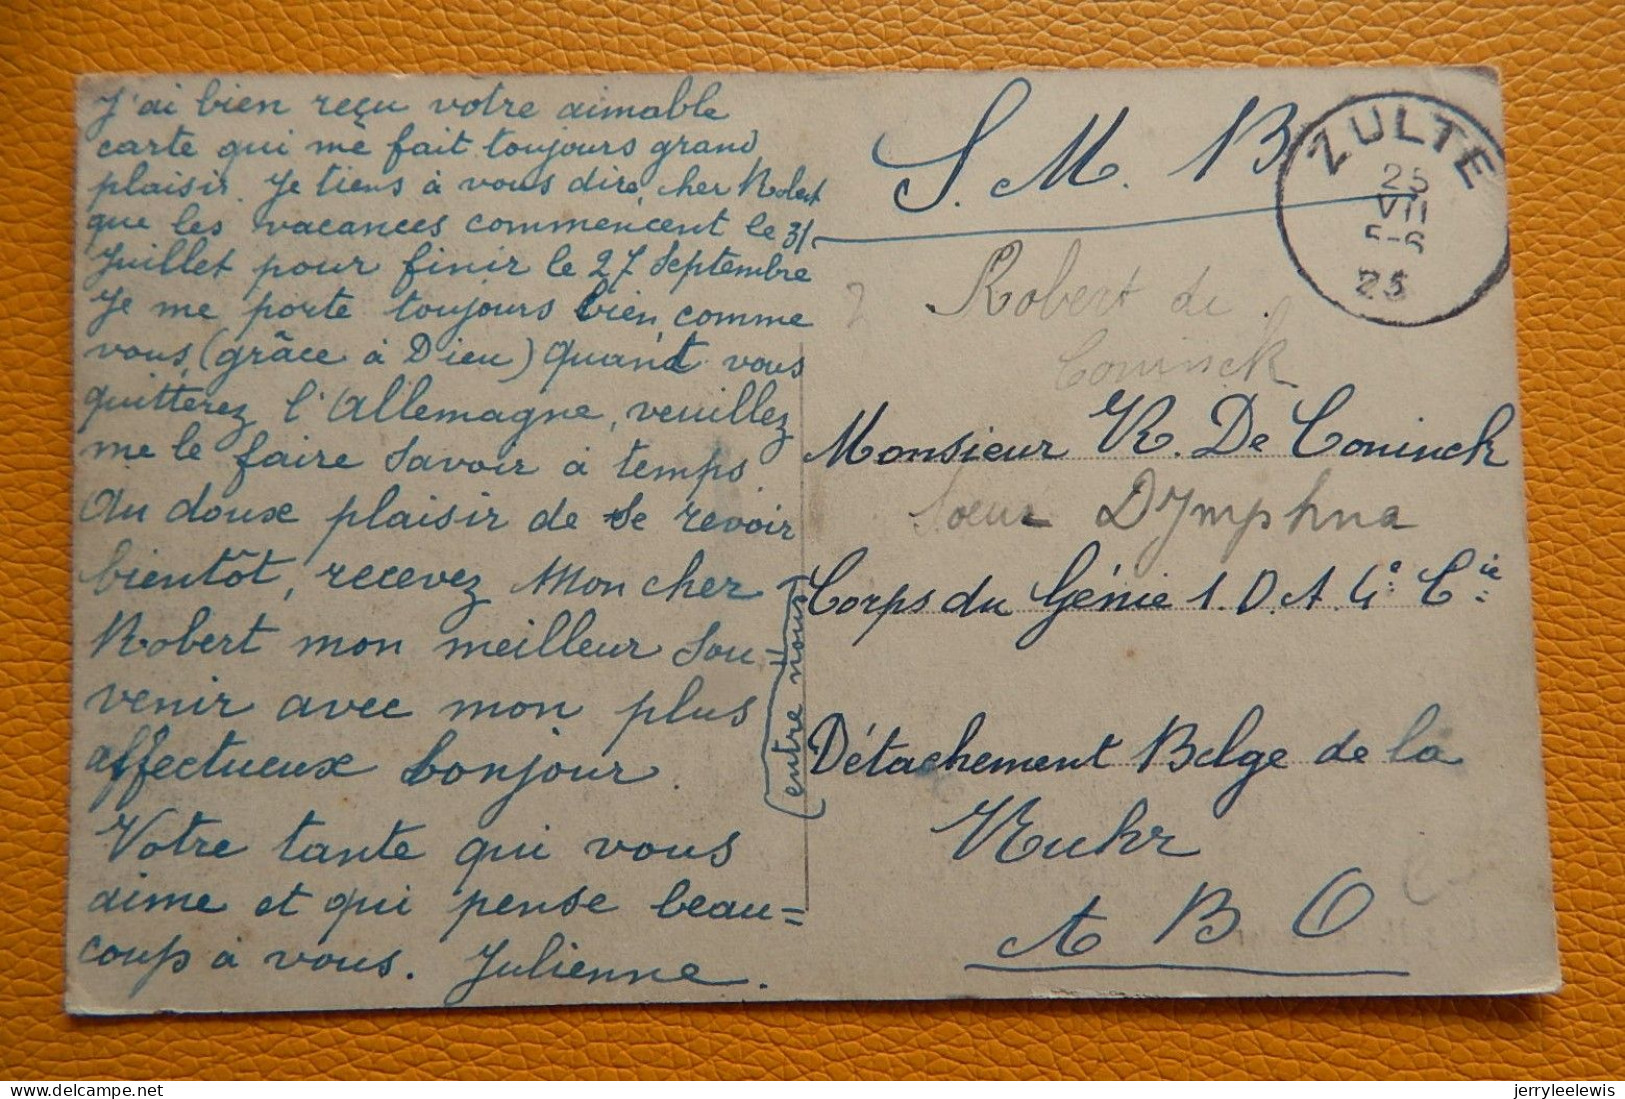 J'ai bien reçu votre aimable
carte qui me fait toujours grand
plaisir. Je tiens à vous dire, cher Robert
que les vacances commencent le 31
Juillet pour finir le 27 Septembre
Je me porte toujours bien, comme
vous, (grâce à Dieu) Quand vous
quitterez l'Allemagne, veuillez
me le faire savoir à temps.
Au doux plaisir de se revoir
bientôt, recevez Mon cher
Robert mon meilleur Sou=
venir avec mon plus
affectueux bonjour.
Votre tante qui vous
aime et qui pense beau=
coup à vous. Julienne.
(entre nous)
S. M. B
ZULTE
25
VII
5-6
25
Robert de
Coninck
Monsieur R. De Coninck
Soeur Dymphna
Corps du Génie 1. D. A. 4e Cie
Détachement Belge de la
Ruhr
A B O
delcampe.net
jerryleelewis